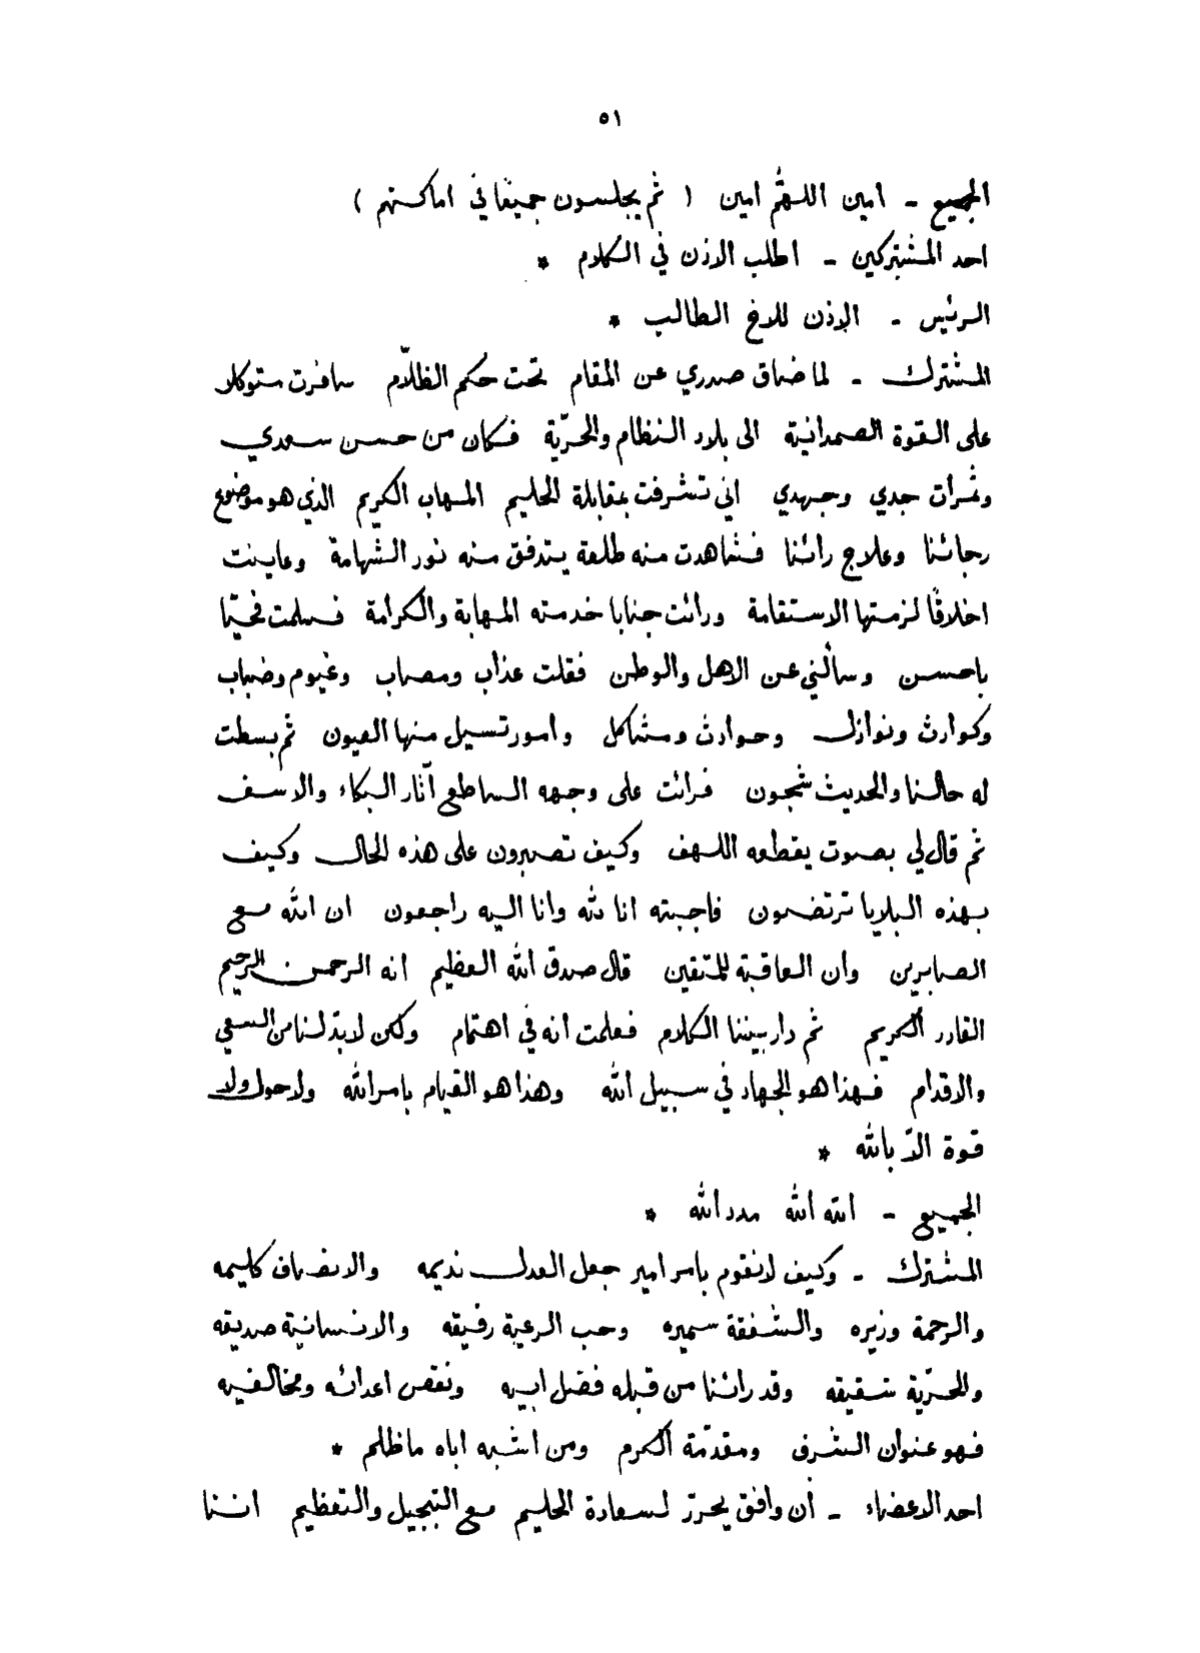 ٥١
الجميع - امين اللهمَّ امين ( ثم يجلسون جميعًا في اماكنهم )
احد المشتركين - اطلب الاذن في الكلام *
الرئيس - الاذن للاخ الطالب *
المشترك - لما ضاق صدري عن المقام تحت حكم الظلّام سافرت متوكلا
على القوة الصمدانية الى بلاد النظام والحرّية فكان من حسن سعدي
وثمرات جدي وجهدي اني تشرفت بمقابلة الحليم المهاب الكريم الذي هو موضوع
رجائنا وعلاج رائنا فشاهدت منه طلعة يتدفق منه نور الشهامة وعاينت
اخلاقًا لزمتها الاستقامة ورائت جنابا خدمته المهابة والكرامة فسلمت فحيّا
باحسن وسألني عن الاهل والوطن فقلت عذاب ومصاب وغيوم وضباب
وكوارث ونوازل وحوادث ومشاكل وامور تسيل منها العيون ثم بسطت
له حالنا والحديث شجون فرائت على وجهه الساطع آثار البكاء والاسف
ثم قال لي بصوت يقطعه اللهف وكيف تصبرون على هذه الحال وكيف
بهذه البلايا ترتضون فاجبته انا لله وانا اليه راجعون ان الله مع
الصابرين وان العاقبة للمتقين قال صدق الله العظيم انه الرحمن الرحيم
القادر الكريم ثم دار بيننا الكلام فعلمت انه في اهتمام ولكن لابدّ لنا من السعي
والاقدام فهذا هو الجهاد في سبيل الله وهذا هو القيام بامر الله ولا حول ولا
قوة الّا بالله *
الجميع - الله الله مدد الله *
المشترك - وكيف لا نقوم بامر امير جعل العدل نديمه والانصاف كليمه
والرحمة وزيره والشفقة سميره وحب الرعية رفيقه والانسانية صديقه
والحرّية شقيقه وقد رائنا من قبله فضل ابيه ونقص اعدائه ومخالفيه
فهو عنوان الشرف ومقدّمة الكرم ومن اشبه اباه ما ظلم *
احد الاعضاء - أن وافق يحرر لسعادة الحليم مع التبجيل والتعظيم اننا